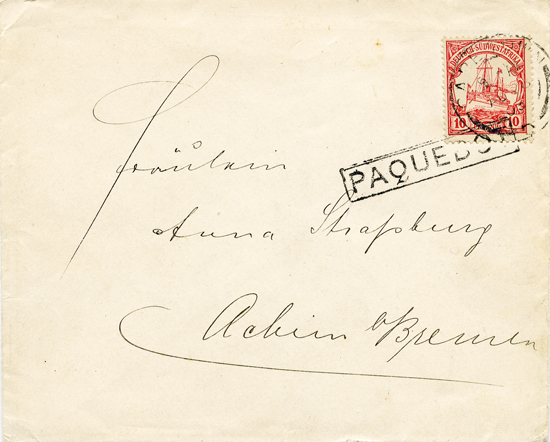 DEUTSCH-SÜDWESTAFRIKA
10 10
PAQUEBO
Fräulein
Anna Straßburg
Achim b/Bremen